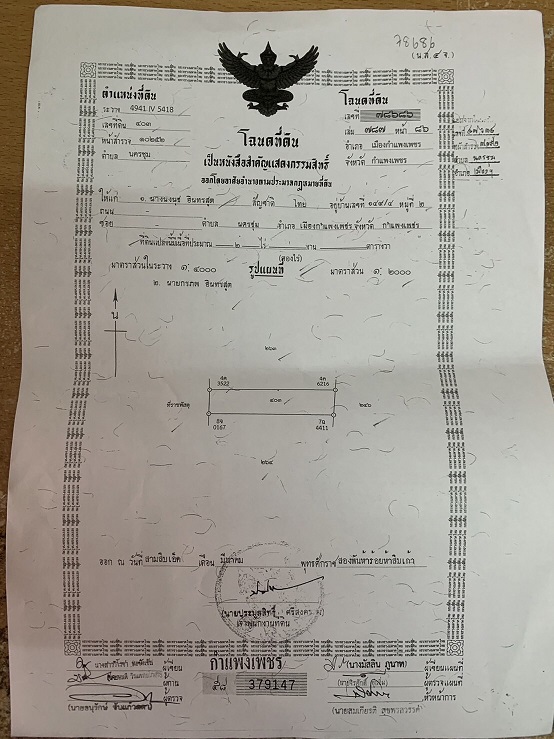 78686
(น.ส.๔ จ.)
ตำแหน่งที่ดิน
ระวาง 4941 IV 5418
เลขที่ดิน ๔๐๓
หน้าสำรวจ ๑๐๒๕๒
ตำบล นครชุม
โฉนดที่ดิน
เลขที่ ๗๘๖๘๖
เล่ม ๗๘๗ หน้า ๘๖
อำเภอ เมืองกำแพงเพชร
จังหวัด กำแพงเพชร
โฉนดที่ดิน
เป็นหนังสือสำคัญแสดงกรรมสิทธิ์
ออกโดยอาศัยอำนาจตามประมวลกฎหมายที่ดิน
ให้แก่ ๑. นางนงนุช อินทรสุด สัญชาติ ไทย อยู่บ้านเลขที่ ๑๔๙/๔ หมู่ที่ ๒
ถนน
ซอย ตำบล นครชุม อำเภอ เมืองกำแพงเพชร จังหวัด กำแพงเพชร
ที่ดินแปลงนี้มีเนื้อที่ประมาณ ๒ ไร่ - งาน - ตารางวา
(สองไร่)
มาตราส่วนในระวาง ๑:๔๐๐๐ รูปแผนที่ มาตราส่วน ๑:๒๐๐๐
๒. นายกรภพ อินทรสุด
น
๒๖๓
4ค 3522
4ค 6216
ที่ราชพัสดุ
๔๐๓
๒๔๖
8จ 0167
7ฉ 4411
๒๖๔
ออก ณ วันที่ สามสิบเอ็ด เดือน มีนาคม พุทธศักราช สองพันห้าร้อยห้าสิบเก้า
เจ้าพนักงานที่ดิน
กำแพงเพชร
๕๘ 379147
ผู้เขียน
ผู้ทาน
ผู้ตรวจ
(นางมัสลิน ภูนาท) ผู้เขียนแผนที่
ผู้ตรวจแผนที่
หัวหน้าการ